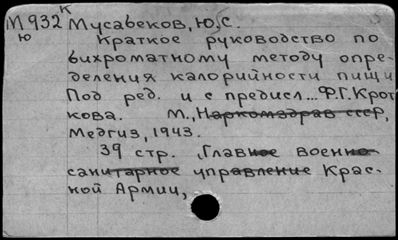 К
М 932 Мусабеков, Ю.С.
Ю
Краткое руководство по
бихроматному методу опре-
деления калорийности пищи
Под ред. и с предисл... Ф.Г. Крот
кова. М., Наркомздрав ссср,
Медгиз, 1943.
39 стр. (Главное военно-
санитарное управление Крас-
ной Армии,